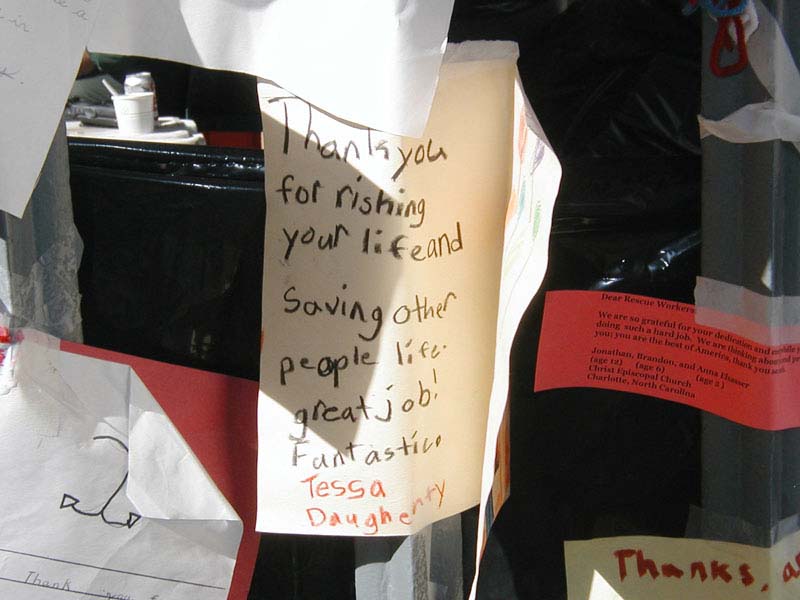 Thank you
for rishing
your life and
saving other
people life.
great job!
Fantastic.
Tessa
Daugherty
Dear Rescue Workers
We are so grateful for your dedication and
doing such a hard job. We are thinking about and
you; you are the best of America, thank you
Jonathan, Brandon, and Anna Elsasser
(age 12) (age 6) (age 2)
Christ Episcopal Church
Charlotte, North Carolina
Thanks,
Thank